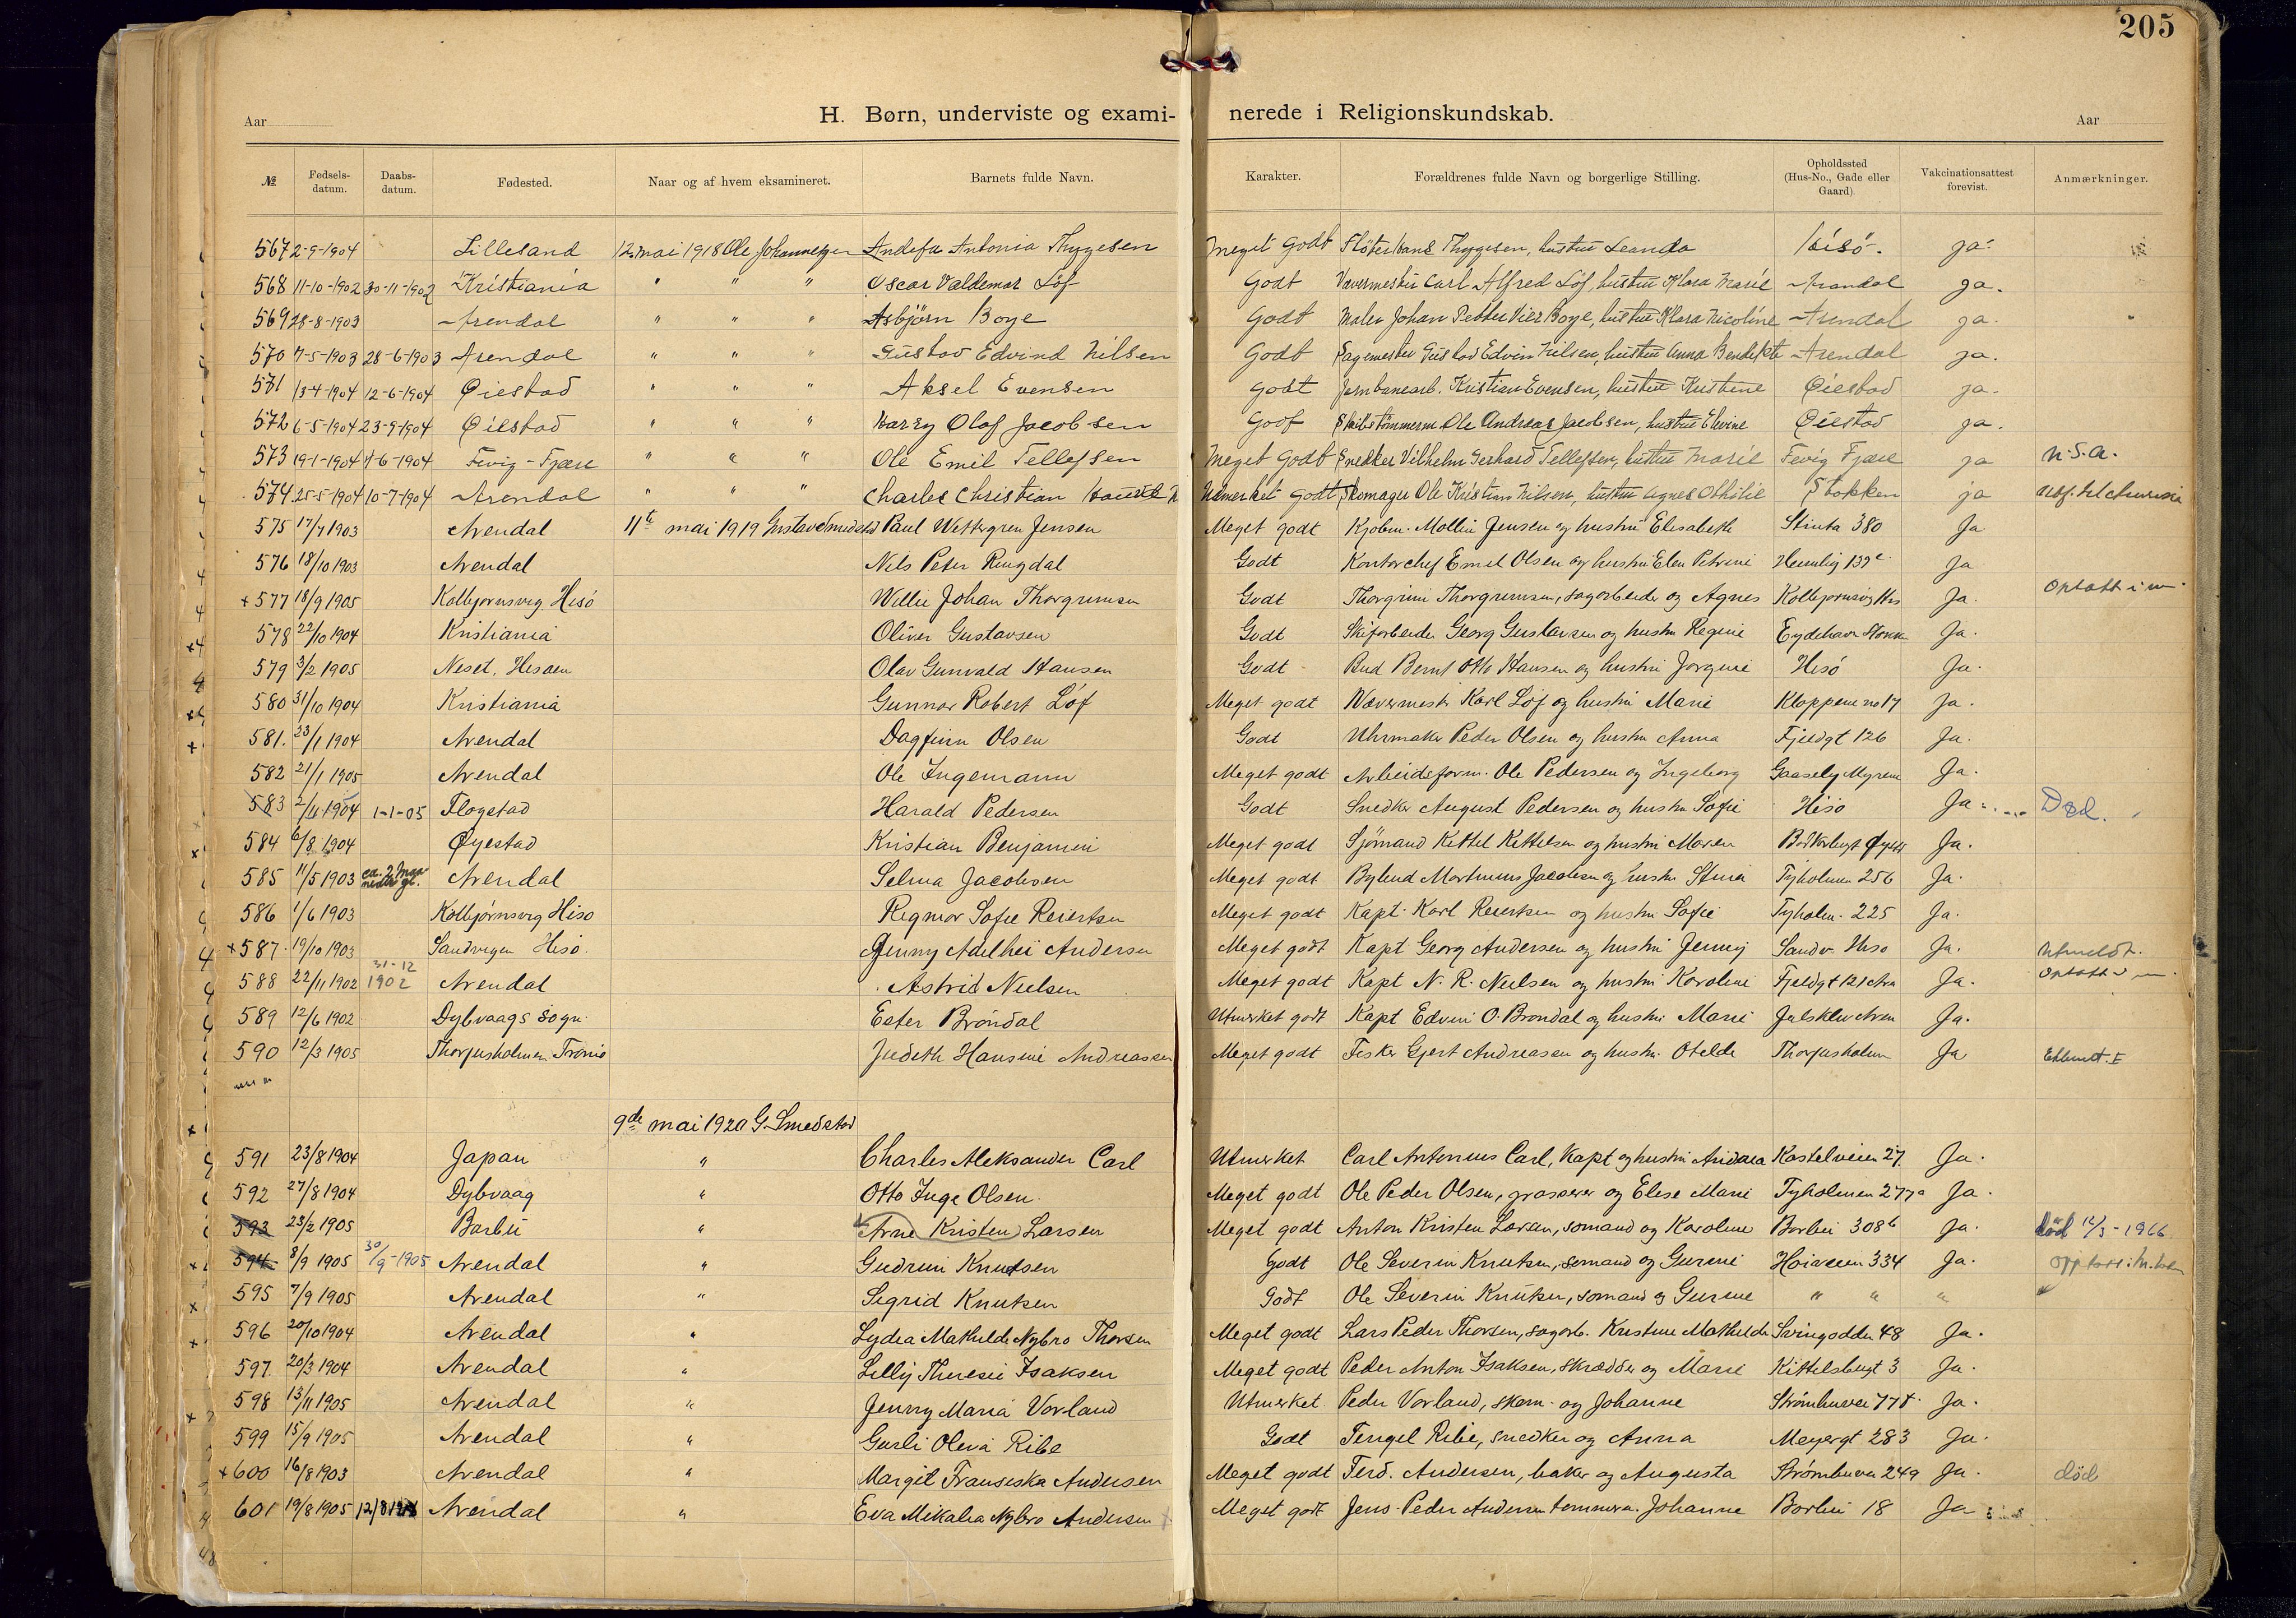 205
Aar H. Børn, underviste og exami- nerede i Religionskundskab. Aar
№ Fødsels-datum. Daabs-datum. Fødested. Naar og af hvem eksamineret. Barnets fulde Navn. Karakter. Forældrenes fulde Navn og borgerlige Stilling. Opholdssted (Hus-No., Gade eller Gaard). Vakcinationsattest forevist. Anmærkninger.
567 2-9-1904 Lillesand 12 mai 1918 Ole Johannessen Antonia Thygesen Meget Godt Thygesen, hustru Leanda Hisö. ja.
568 11-10-1902 30-11-1902 Kristiania " " " Oscar Valdemar Löf Godt Vævermester Carl Alfred Löf, hustru Klara Marie Arendal ja.
569 28-8-1903 Arendal " " " Asbjörn Boye Godt Maler Johan Petter Boye, hustru Klara Nicoline Arendal ja.
570 7-5-1903 28-6-1903 Arendal " " " Gustav Edvind Nilsen Godt Sagemester Gustav Edvin Nilsen, hustru Anna Arendal ja.
571 13-4-1904 12-6-1904 Øiestad " " " Aksel Evensen Godt Jernbanearb. Kristian Evensen, hustru Kristine Øiestad ja.
572 6-5-1904 23-9-1904 Öiestad " " " Harry Olaf Jacobsen Godt Ole Andreas Jacobsen, hustru Elevine Øiestad ja.
573 19-1-1904 Fevig - Fjære " " " Ole Emil Tellefsen Meget Godt Snedker Vilhelm Gerhard Tellefsen, hustru Marie Fevig Fjære ja n.s.a.
574 25-5-1904 10-7-1904 Arendal " " " Charles Christian Udmerket Godt Skomager Ole Kristian Nilsen, hustru Agnes Othilie Stokken ja
575 17/7 1903 Arendal 11te mai 1919 Gustav Smedstad Paul Wettergren Jensen Meget godt Kjøbm. Jensen og hustru Elisabeth Stinta 380 Ja
576 18/10 1903 Arendal Nils Peter Ringdal Godt Kontorchef Emil Olsen og hustru Elen Petrine Ja
+577 18/9 1905 Kolbjørnsvig Hisö Willie Johan Thorgrimsen Godt Thorgrim Thorgrimsen, sagarbeider og Agnes Kolbjørnsvig His Ja. Optatt i m.
578 22/10 1904 Kristiania Oliver Gustavsen Godt Georg Gustavsen og hustru Regine Eydehavn Ja.
579 3/2 1905 Neset, Hisøen Olav Gunvald Hansen Godt Bud Bernt Otto Hansen og hustru Jørgine Hisö Ja.
580 31/10 1904 Kristiania Gunnar Robert Löf Meget godt Wævermester Karl Löf og hustru Marie Kloppene no 17 Ja.
581. 23/1 1904 Arendal Dagfinn Olsen Godt Uhrmaker Peder Olsen og hustru Anna Fjeldgt 126 Ja.
582 21/1 1905 Arendal Ole Ingemann Meget godt Arbeidsform. Ole Pedersen og Ingeborg Myrene Ja.
583 2/11 1904 1-1-05 Flogstad Harald Pedersen Godt Snedker August Pedersen og hustru Sofie Hisö Ja Død.
584 6/8 1904 Øyestad Kristian Benjamin Meget godt Sjømand Kittel Kittelsen og hustru Maren Ja.
585 11/5 1903 ca. 2 maaneder gl. Arendal Selma Jacobsen Meget godt Bybud Martinius Jacobsen og hustru Stina Tyholmen 256 Ja.
586 1/6 1903 Kolbjørnsvig Hisø Ragmor Sofie Reiertsen Meget godt Kapt. Karl Reiertsen og hustru Sofie Tyholm. 225 Ja.
+587. 19/10 1903 Sandvigen Hisø. Jenny Adelhei Andersen Meget godt Kapt Georg Andersen og hustru Jenny Sandv. Hisø Ja. Utmeldt.
588 22/11 1902 31-12 1902 Arendal Astrid Nielsen Meget godt Kapt N. R. Nielsen og hustru Karoline Fjeldgt 121 Ja. Optatt i m.
589 12/6 1902 Dybvaags sogn. Ester Bröndal Utmerket godt Kapt Edvin O. Brøndal og hustru Marie Ja.
590 12/3 1905 Thorjusholmen Tromö Judith Hansine Andreassen Meget godt Fisker Gjert Andreasen og hustru Otelde Thorjusholmen Ja
9de mai 1920 G. Smedstad
591 23/8 1904 Japan " Charles Aleksander Carl Utmerket Carl Antonius Carl, Kapt og hustru Andrea Kastelveien 27 Ja.
592 27/8 1904 Dybvaag " Otto Inge Olsen. Meget godt Ole Peder Olsen, grosserer og Elise Marie Tyholmen 277a Ja.
593 23/2 1905 Barbu " Arne Kristen Larsen Meget godt Anton Kristen Larsen, sømand og Karoline Barbu 308b Ja. død 12/3-1966
594 8/9 1905 30/9-1905 Arendal " Gudrun Knutsen Godt Ole Severin Knutsen, sømand og Gurine Høiveien 334 Ja.
595 7/9 1905 Arendal " Sigrid Knutsen Godt Ole Severin Knutsen, sømand og Gurine " " "
596 20/10 1904 Arendal " Lydia Mathilde Nybro Thorsen Meget godt Lars Peder Thorsen, sagarb. Kristine Mathilde Svingodden 48 Ja.
597. 20/3 1904 Arendal " Lilly Theresie Isaksen Meget godt Peder Anton Isaksen, skrædder og Marie Kittelsbugt 3 Ja.
598 13/11 1905 Arendal " Jenny Maria Vorland Utmerket Peder Vorland, skom. og Johanne Ja.
599 15/9 1905 Arendal " Gusli Oleva Ribe Godt Tengel Ribe, snedker og Anna Meyergt 283 Ja.
+600 16/8 1903 Arendal " Margit Fransiska Andersen Meget godt Ferd. Andersen, baker og Augusta Strømbuvei 249 Ja. död
601 19/8 1905 Arendal " Eva Mikalia Nybro Andersen Meget godt Jens Peder Andersen tømmerm. Johanne Barbu 18 Ja